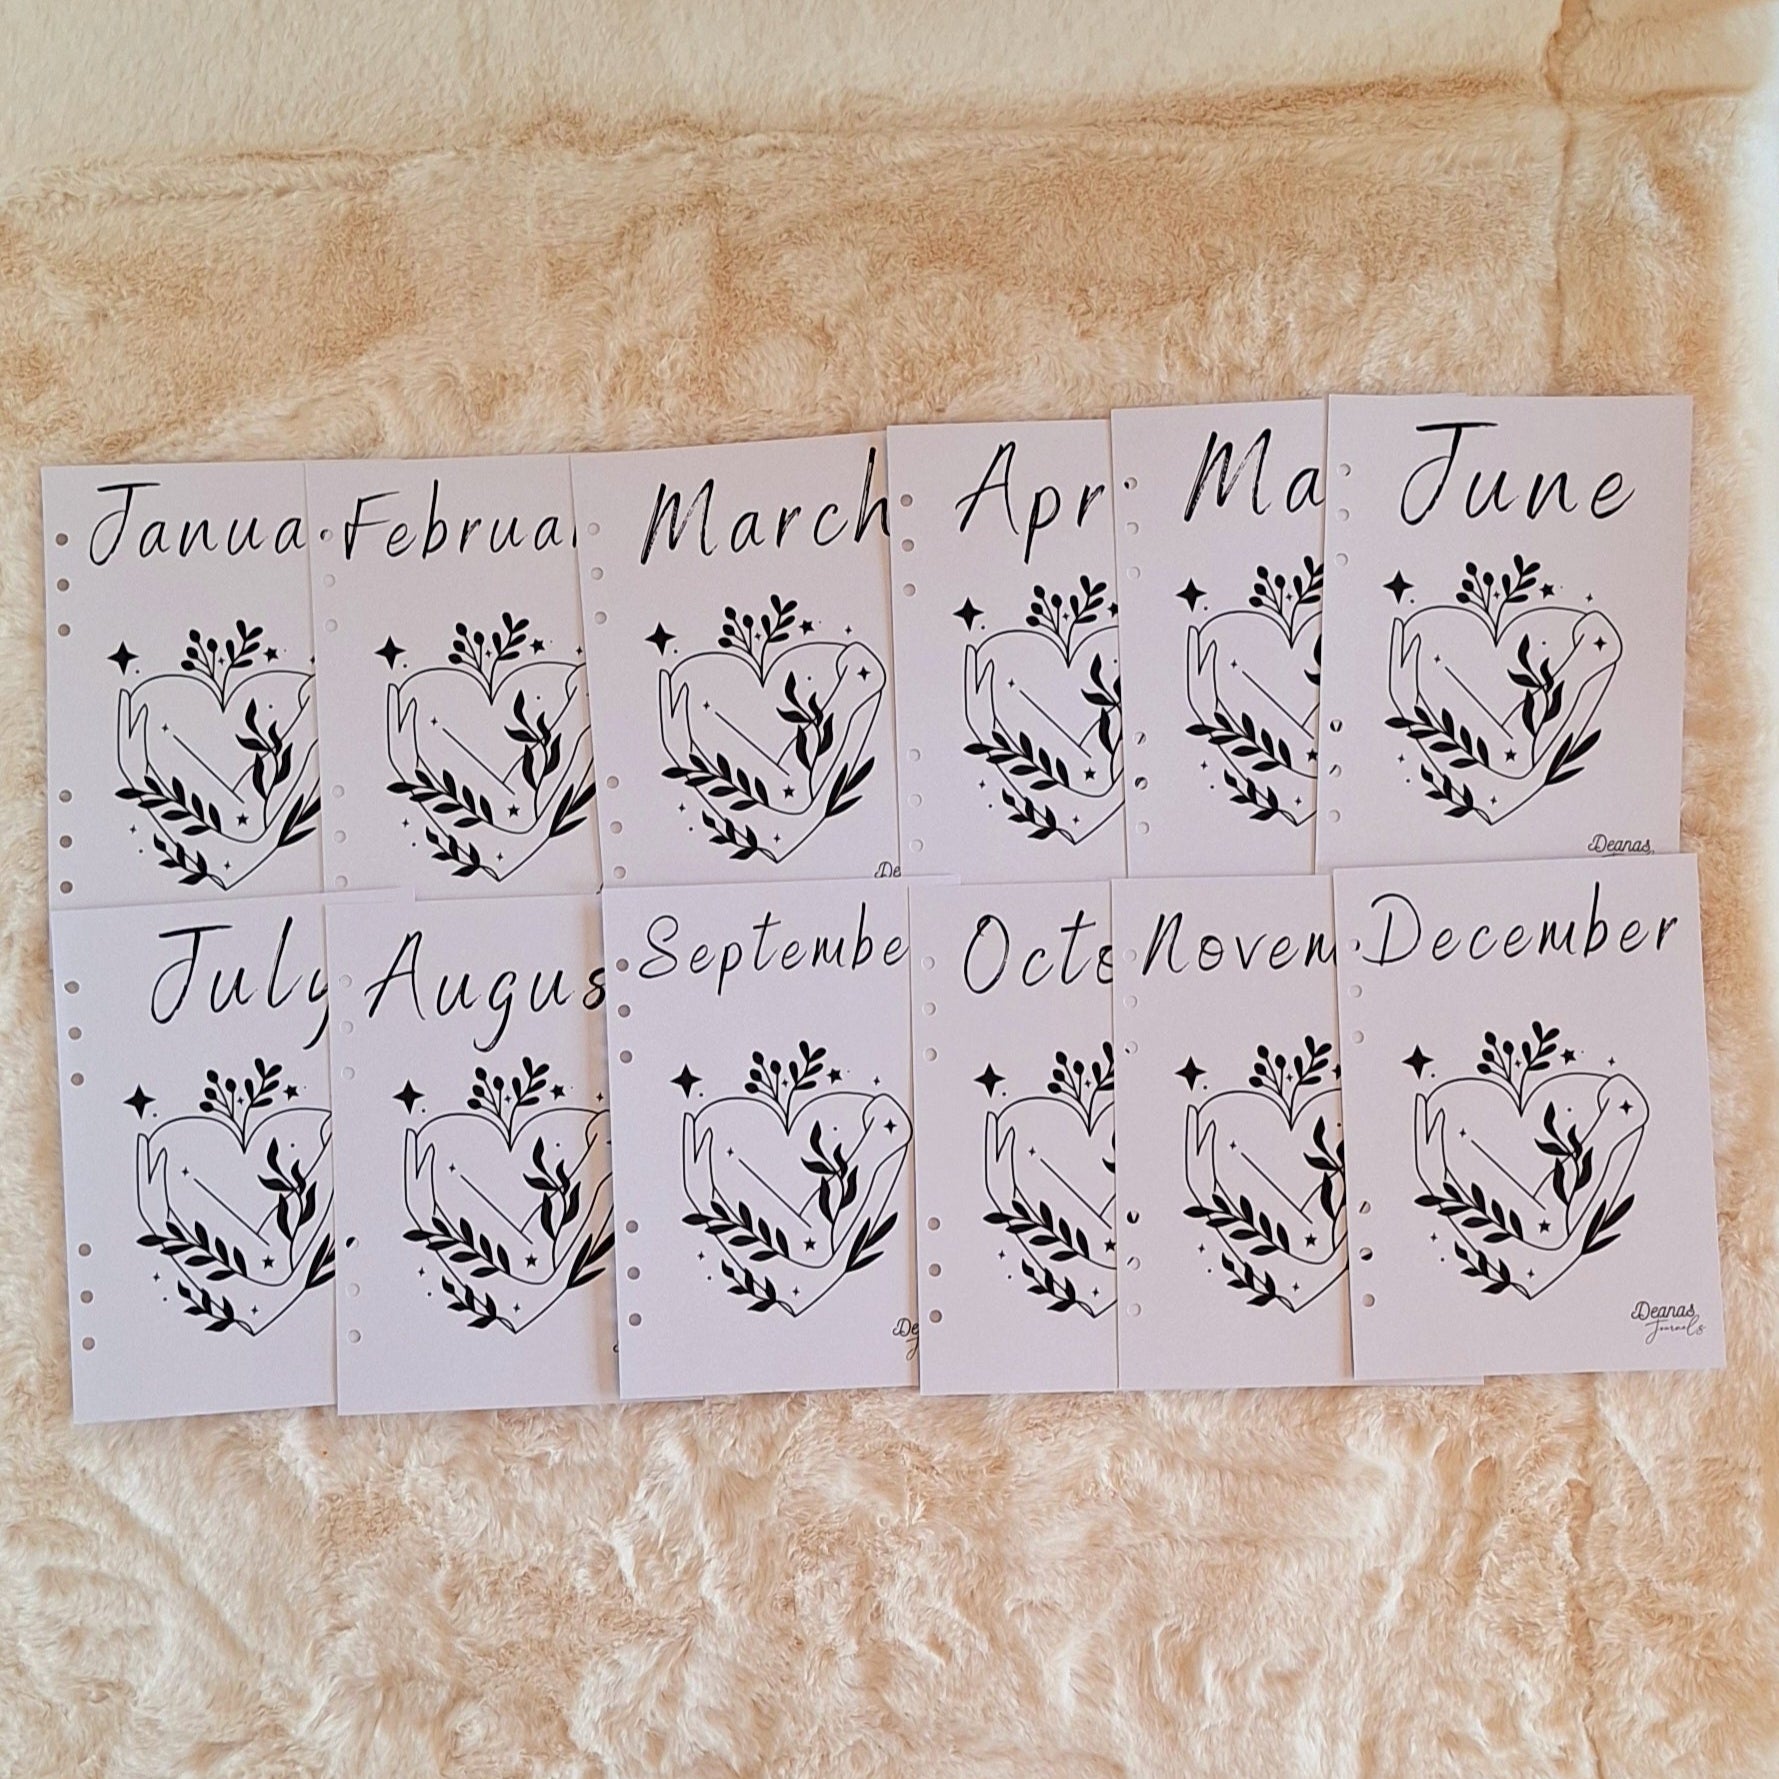 Janua
Februar
March
Apr
Ma
June
De
Deanas
July
Augus
Septembe
Octo
Novem
December
De
Deanas
Journals